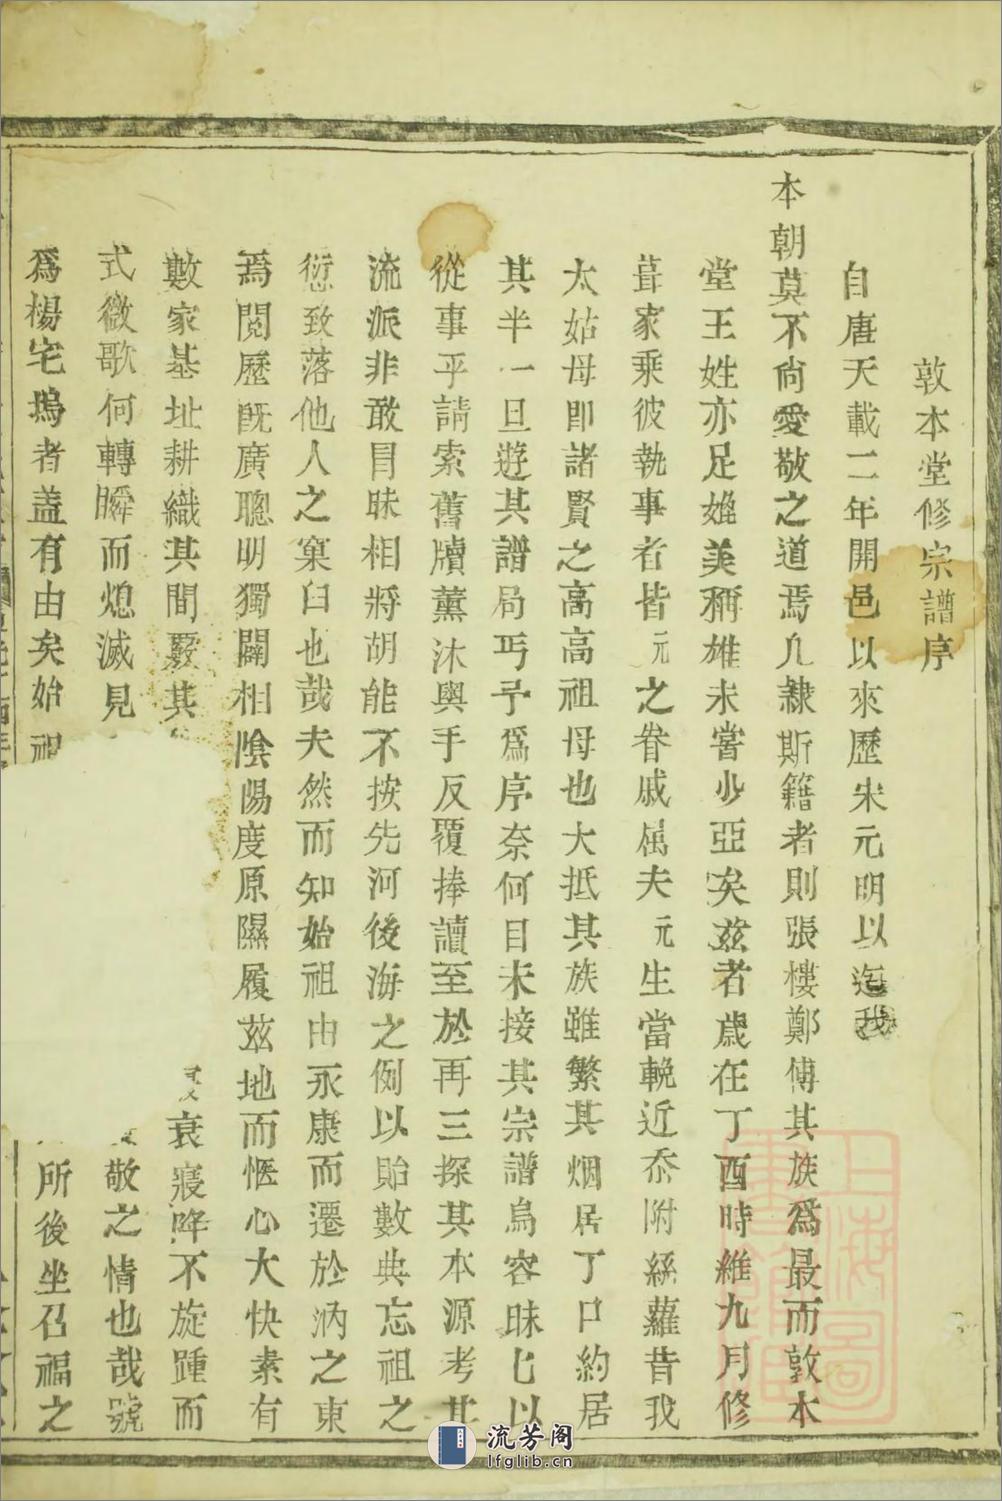 敦本堂修宗譜序
自唐天載二年開邑以來歷宋元明以迄我
本朝莫不尚愛敬之道焉凡隸斯籍者則張樓鄭傅其族爲最而敦本
堂王姓亦足媲美稱雄未嘗少亞矣茲者歲在丁酉時維九月修
葺家乘彼執事者皆元之眷戚属夫元生當輓近忝附絲蘿昔我
太姑母即諸賢之高高祖母也大抵其族雖繁其烟居丁口約居
其半一旦遊其譜局丐予爲序奈何目未接其宗譜烏容昧匕以
從事乎請索舊牘薰沐與手反覆捧讀至於再三探其本源考其
流派非敢冒昧相將胡能不按先河後海之例以貽數典忘祖之
愆致落他人之窠臼也哉夫然而知始祖由永康而遷於泃之東
焉閱歷既廣聰明獨闢相陰陽度原隰履茲地而愜心大快素有
數家基址耕織其間覈其衰寢降不旋踵而
式微歌何轉瞬而熄滅見敬之情也哉號
爲楊宅塢者盖有由矣始祖所後坐召福之
上海圖書館藏
流芳阁
lfglib.cn